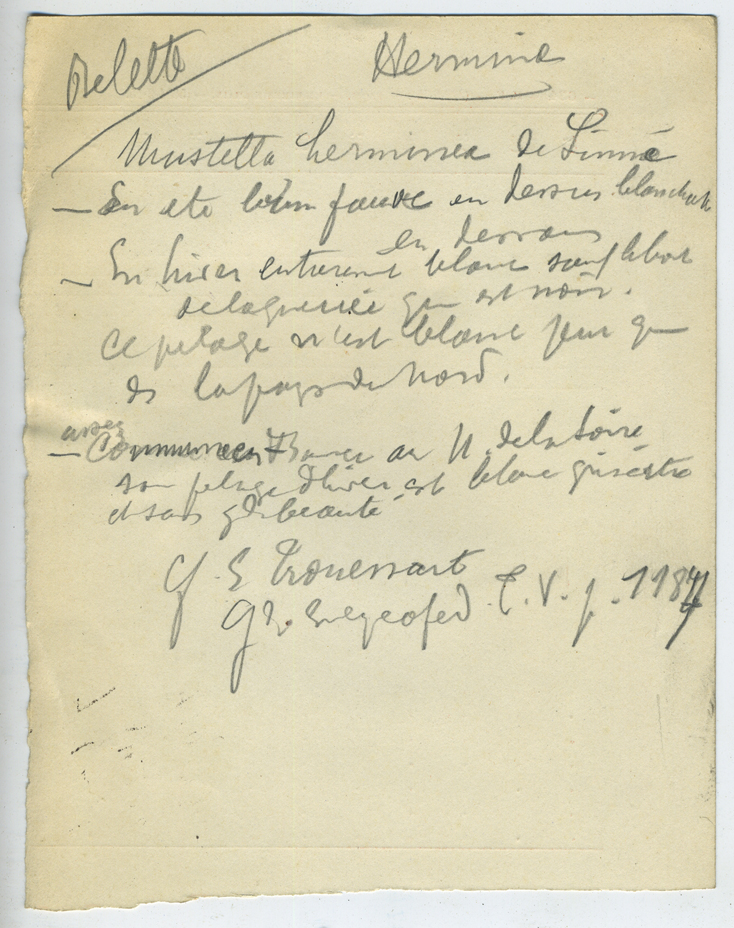 Belette
Hermine
Mustella herminea de Linné
— En eté brun fauve en dessus blanchatre
en dessous
— En hiver entierement blanc sauf le bout
de la queue qui est noir.
Ce pelage n'est blanc pur que
ds les pays du Nord.
assez
— Commune en France au N. de la Loire
son pelage d'hiver est blanc grisatre
et sans gde beauté
Cf. E Trouessart
Gde Encycloped T. V. p. 1187